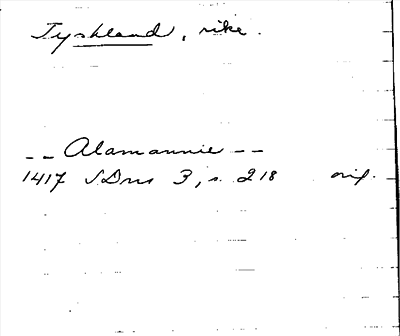 Tyskland, rike.
-- Alamannie --
1417 SDns 3, s. 218 orig.